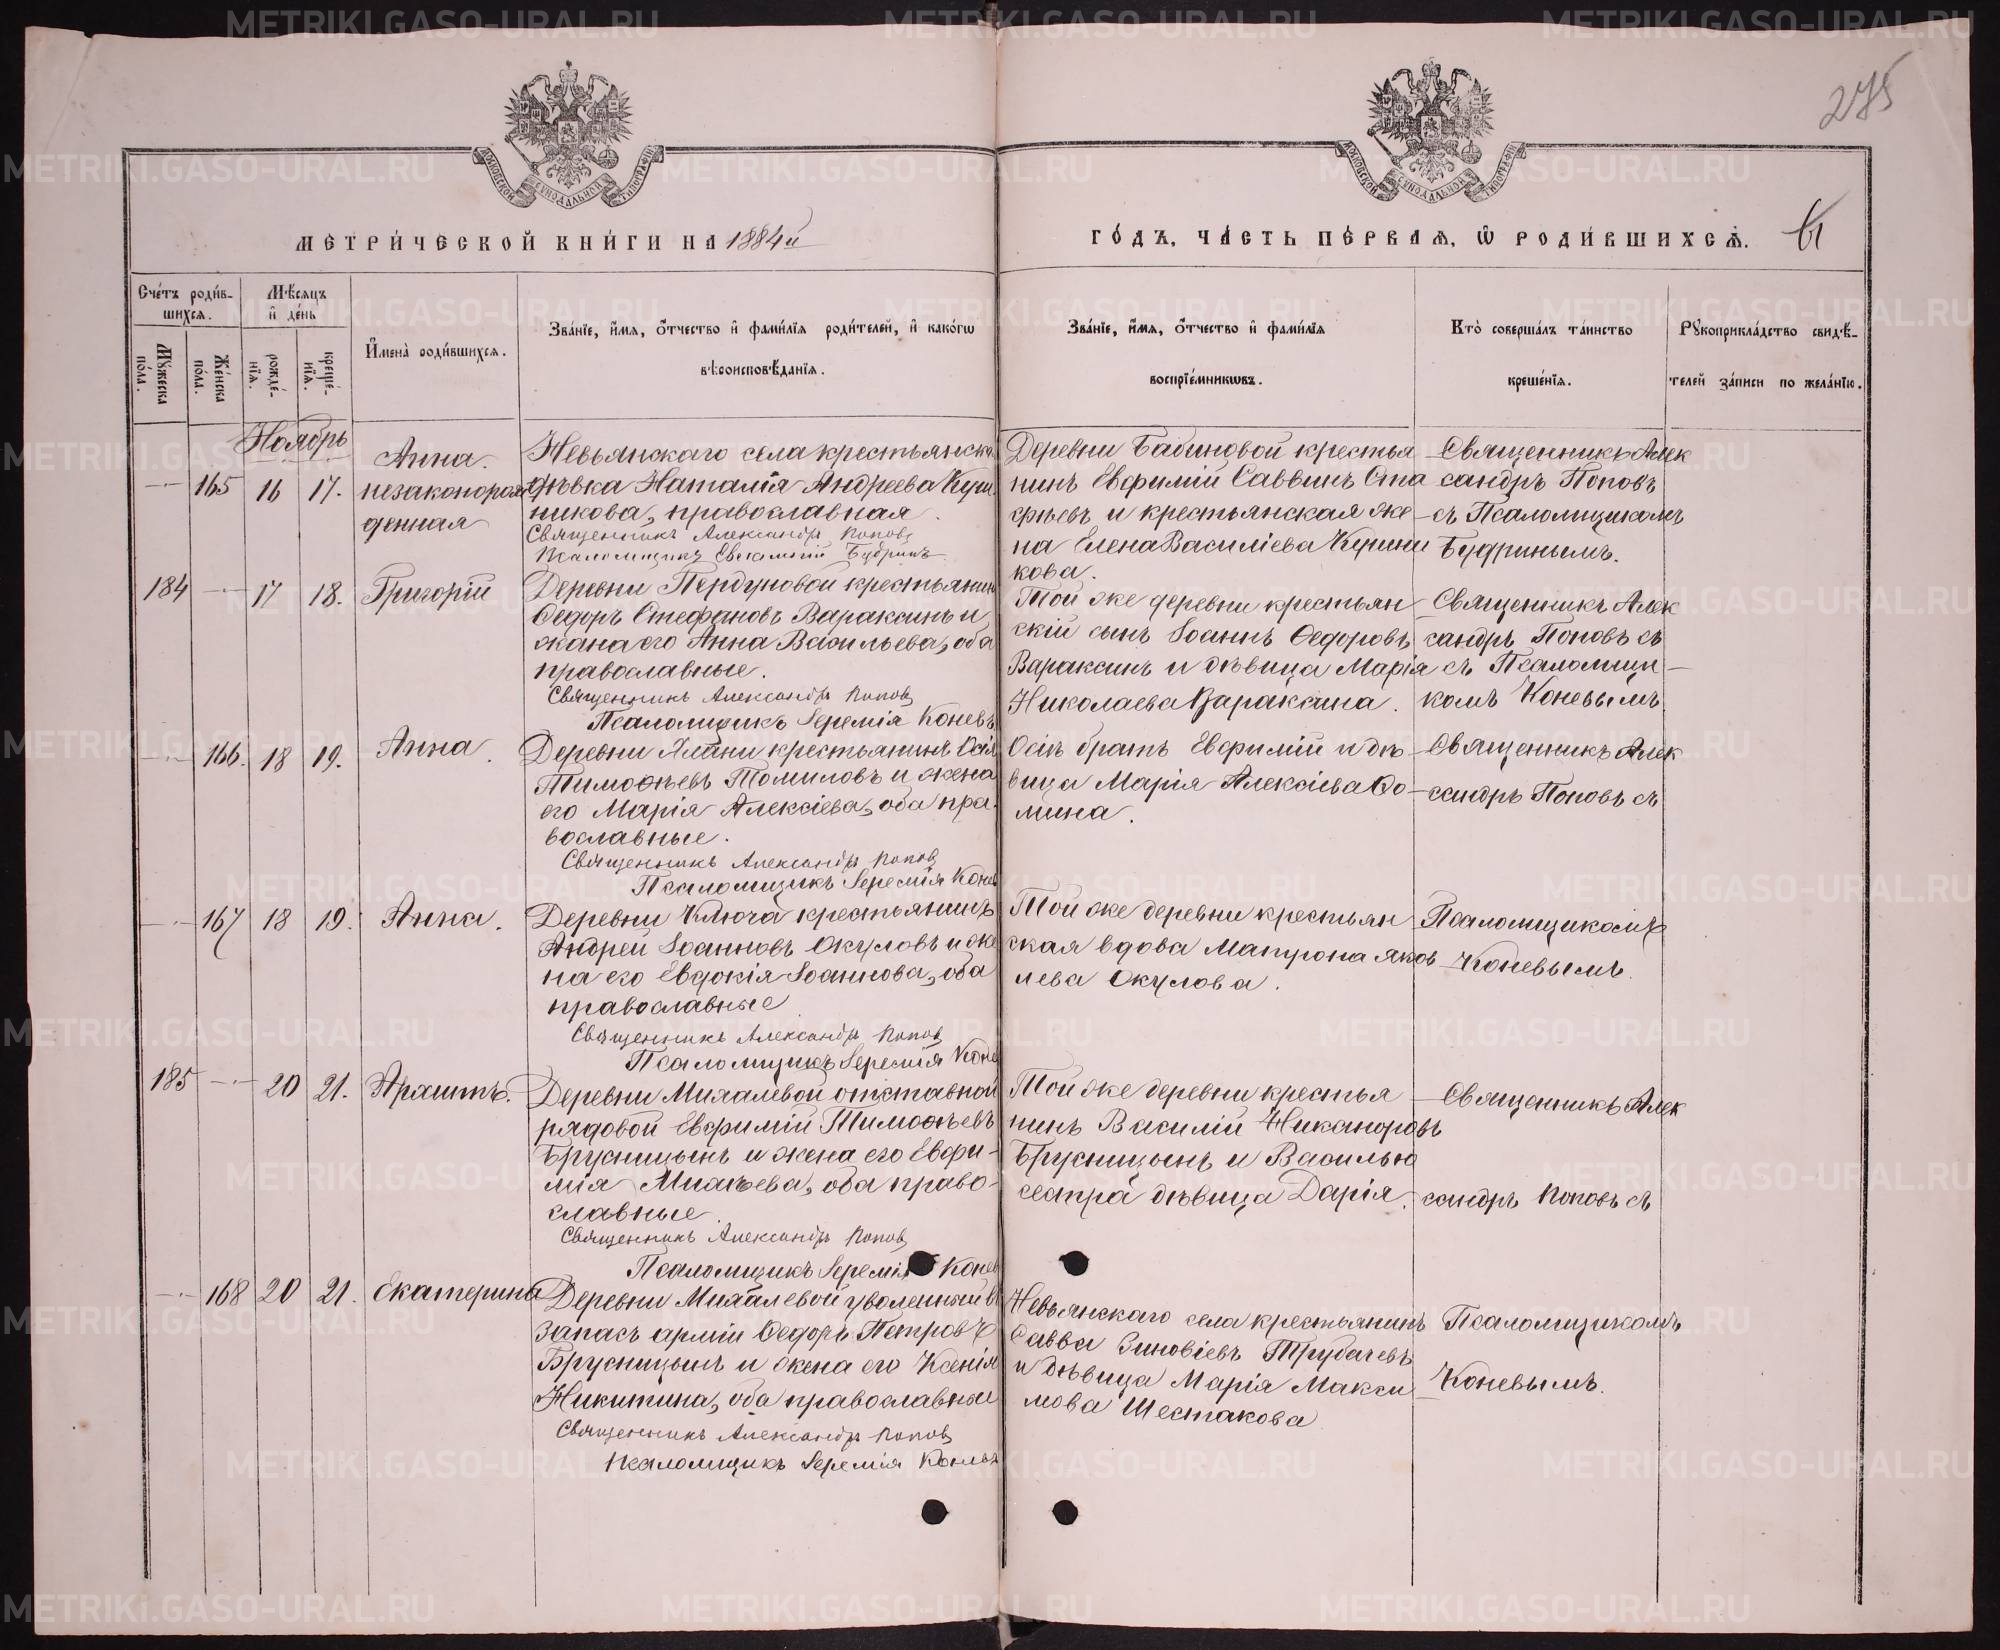 275
МОСКОВСКОЙ СѴНОДАЛЬНОЙ ТИПОГРАФІИ
МОСКОВСКОЙ СѴНОДАЛЬНОЙ ТИПОГРАФІИ
МЕТРИ́ЧЕСКОЙ КНИ́ГИ НА 1884й
ГО́ДЪ, ЧА́СТЬ ПЕ́РВАѦ, Ѡ҆ РОДИ́ВШИХСѦ.
Сче́тъ роди́в-
шихсѧ.
Мѣ́сѧцъ
и҆ де́нь
Мꙋ́жеска по́ла.
Же́нска по́ла.
рожде́-нїѧ.
креще́-нїѧ.
И҆мена̀ роди́вшихсѧ.
Зва́нїе, и҆́мѧ, ѻ҆́тчество и҆ фами́лїѧ роди́телей, и҆ како́гѡ
вѣроисповѣ́данїѧ.
Зва́нїе, и҆́мѧ, ѻ҆́тчество и҆ фами́лїѧ
воспрїе́мникѡвъ.
Кто̀ соверша́лъ та́инство
креще́нїѧ.
Рꙋкоприкла́дство свидѣ́-
телей за́писи по жела́нїю.
Ноябрь
165 16 17.
Анна.
незаконорож
денная
Невьянскаго села крестьянска
дѣвка Наталія Андреева Куши
никова, православная.
Священникъ Александръ Попов
Псаломщикъ Будринъ
Деревни Бабиновой крестья
нинъ Евфимій Саввинъ Ста
фѣевъ и крестьянская же
на Елена Василіева Кушни
кова.
Священникъ Алек
сандръ Поповъ
съ Псаломщикомъ
Будринымъ.
184 17 18.
Григорій
Деревни Пердуновой крестьянин
Ѳедоръ Стефановъ Вараксинъ и
жена его Анна Васильева, оба
православные.
Священникъ Александръ Попов
Псаломщикъ Іеремія Коневъ
Той же деревни крестьян
скій сынъ Іоаннъ Ѳедоровъ
Вараксинъ и дѣвица Марія
Николаева Вараксина.
Священникъ Алек
сандръ Поповъ съ
съ Псаломщи-
комъ Коневымъ
166. 18 19.
Анна.
Деревни Ялани крестьянинъ Осія
Тимоѳеевъ Томиловъ и жена
его Марія Алексіева, оба пра
вославные.
Священникъ Александръ Попов
Псаломщикъ Іеремія Конев
Осіи братъ Евфимій и дѣ
вица Марія Алексіева Ѳо
мина.
Священникъ Алек
сандръ Поповъ съ
167 18 19.
Анна.
Деревни Ключа крестьянинъ
Андрей Іоанновъ Окуловъ и же
на его Евдокія Іоаннова, оба
православные
Священникъ Александръ Попов
Псаломщикъ Іеремія Коне
Той же деревни крестьян
ская вдова Матрона Яков
лева Окулова.
Псаломщикомъ
Коневымъ.
185 20 21.
Деревни Михалевой отставной
рядовой Евфимій Тимоѳеевъ
Брусницынъ и жена его Евфи-
мія Михѣева, оба право-
славные.
Священникъ Александръ Попов
Псаломщикъ Іеремія Конев
Той же деревни крестья
нинъ Василій Никаноровъ
Брусницынъ и Василью
сестра дѣвица Дарія.
Священникъ Алек
сандръ Поповъ съ
168 20 21.
Екатерина
Деревни Михалевой уволенный въ
запасъ арміи Ѳедоръ Петровъ
Брусницынъ и жена его Ксенія
Никитина, оба православные
Священникъ Александръ Попов
Псаломщикъ Іеремія Коневъ
Невьянскаго села крестьянинъ
Савва Зиновіевъ Трубачевъ
и дѣвица Марія Макси
мова Шестакова
Псаломщикомъ
Коневымъ.
METRIKI.GASO-URAL.RU